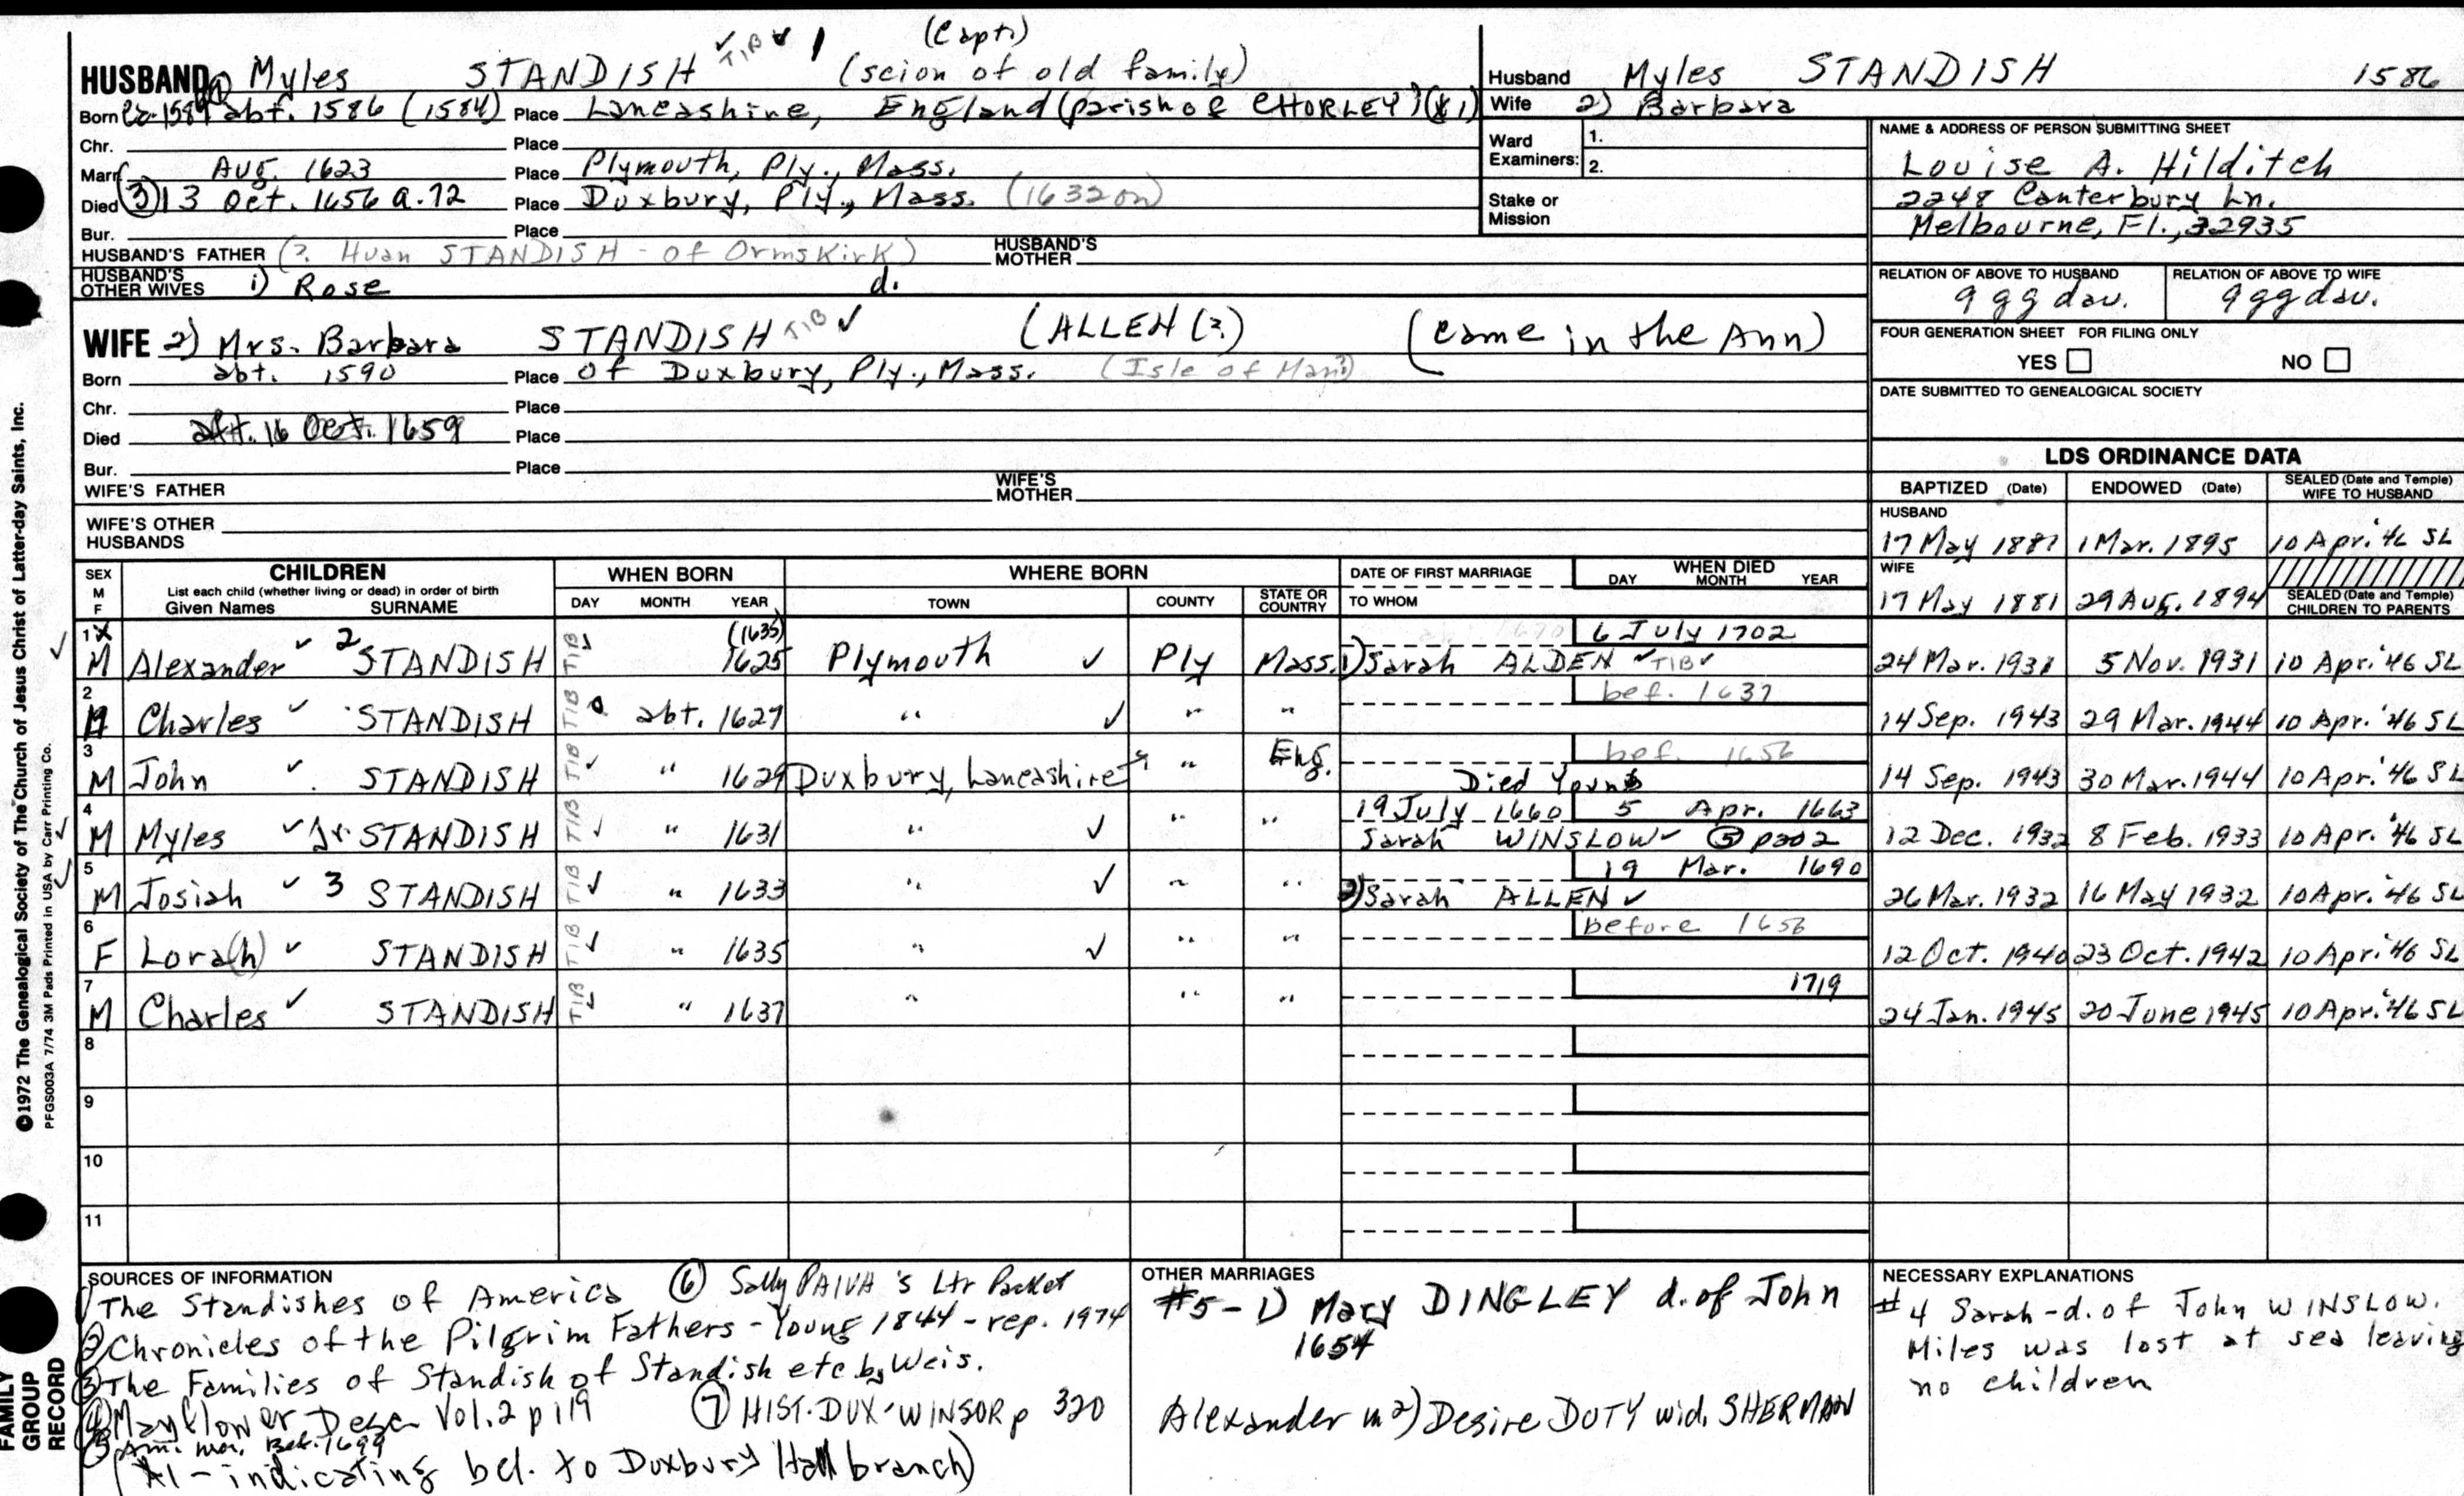 (Capt.)
HUSBAND Myles STANDISH TIB 1 (scion of old family)
Born ca. 1584 abt. 1586 (1584) Place Lancashire, England (parish of CHORLEY) (#1)
Chr. Place
Marr. Aug. 1623 Place Plymouth, Ply., Mass.
Died (3) 13 Oct. 1656 a. 72 Place Duxbury, Ply., Mass. (1632 on)
Bur. Place
HUSBAND'S FATHER (? Huan STANDISH - of Ormskirk) HUSBAND'S MOTHER
HUSBAND'S OTHER WIVES 1) Rose d.
WIFE 2) Mrs. Barbara STANDISH TIB ✓ (ALLEN (?) (came in the Ann)
Born abt. 1590 Place of Duxbury, Ply., Mass. (Isle of Man?)
Chr. Place
Died aft. 16 Oct. 1659 Place
Bur. Place
WIFE'S FATHER WIFE'S MOTHER
WIFE'S OTHER HUSBANDS
Husband Myles STANDISH 1586
Wife 2) Barbara
Ward Examiners: 1.
2.
Stake or Mission
NAME & ADDRESS OF PERSON SUBMITTING SHEET
Louise A. Hilditch
2248 Canterbury Ln.
Melbourne, Fl., 32935
RELATION OF ABOVE TO HUSBAND RELATION OF ABOVE TO WIFE
9 gg dau. 9 gg dau.
FOUR GENERATION SHEET FOR FILING ONLY
YES NO
DATE SUBMITTED TO GENEALOGICAL SOCIETY
LDS ORDINANCE DATA
BAPTIZED (Date) ENDOWED (Date) SEALED (Date and Temple) WIFE TO HUSBAND
HUSBAND
17 May 1881 1 Mar. 1895 10 Apr. '46 SL
WIFE
17 May 1881 29 Aug. 1894 SEALED (Date and Temple) CHILDREN TO PARENTS
SEX M F CHILDREN List each child (whether living or dead) in order of birth Given Names SURNAME WHEN BORN DAY MONTH YEAR WHERE BORN TOWN COUNTY STATE OR COUNTRY DATE OF FIRST MARRIAGE TO WHOM WHEN DIED DAY MONTH YEAR
1 (1635) 1670 6 July 1702
M Alexander ✓ 2 STANDISH TIB 1625 Plymouth ✓ Ply Mass. 1) Sarah ALDEN ✓ TIB ✓ 24 Mar. 1931 5 Nov. 1931 10 Apr. '46 SL
2 bef. 1637
M Charles ✓ STANDISH TIB abt. 1627 " ✓ " " 14 Sep. 1943 29 Mar. 1944 10 Apr. '46 SL
3 Eng. bef. 1656
M John ✓ STANDISH TIB ✓ " 1629 Duxbury, Lancashire " Died Young 14 Sep. 1943 30 Mar. 1944 10 Apr. '46 SL
4 19 July 1660 5 Apr. 1663
M Myles ✓ Jr. STANDISH TIB ✓ " 1631 " ✓ " " Sarah WINSLOW ✓ (5) p302 12 Dec. 1932 8 Feb. 1933 10 Apr. '46 SL
5 19 Mar. 1690
M Josiah ✓ 3 STANDISH TIB ✓ " 1633 " ✓ " " 2) Sarah ALLEN ✓ 26 Mar. 1932 16 May 1932 10 Apr. '46 SL
6 before 1656
F Lora(h) ✓ STANDISH TIB ✓ " 1635 " ✓ " " 12 Oct. 1940 23 Oct. 1942 10 Apr. '46 SL
7 1719
M Charles ✓ STANDISH TIB ✓ " 1637 " " " 24 Jan. 1945 20 June 1945 10 Apr. '46 SL
8
9
10
11
SOURCES OF INFORMATION (6) Sally PAIVA's Ltr Packet
1) The Standishes of America
(2) Chronicles of the Pilgrim Fathers - Young 1844 - rep. 1974
(3) The Families of Standish of Standish etc. by Weis.
(4) Mayflower Desc Vol. 2 p 119 (7) HIST. DUX - WINSOR p 320
(5) Am. mar. Bef. 1699
(A1 - indicating bel. to Duxbury Hall branch)
OTHER MARRIAGES
#5 - 1) Mary DINGLEY d. of John
1654
Alexander m 2) Desire DOTY wid. SHERMAN
NECESSARY EXPLANATIONS
#4 Sarah - d. of John WINSLOW.
Miles was lost at sea leaving
no children
©1972 The Genealogical Society of The Church of Jesus Christ of Latter-day Saints, Inc.
PFGS003A 7/74 3M Pads Printed in USA by Carr Printing Co.
FAMILY GROUP RECORD